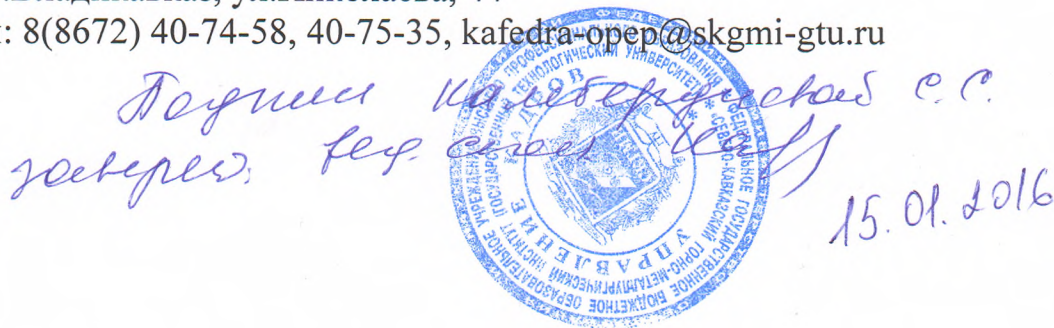 г.Владикавказ, ул.Николаева, 44
: 8(8672) 40-74-58, 40-75-35, kafedra-opep@skgmi-gtu.ru
Подписи С.С.
заверяю: вед. спец.
15.01.2016
ФЕДЕРАЛЬНОЕ ГОСУДАРСТВЕННОЕ БЮДЖЕТНОЕ ОБРАЗОВАТЕЛЬНОЕ УЧРЕЖДЕНИЕ ПРОФЕССИОНАЛЬНОГО ОБРАЗОВАНИЯ
«СЕВЕРО-КАВКАЗСКИЙ ГОРНО-МЕТАЛЛУРГИЧЕСКИЙ ИНСТИТУТ (ГОСУДАРСТВЕННЫЙ ТЕХНОЛОГИЧЕСКИЙ УНИВЕРСИТЕТ)»
УПРАВЛЕНИЕ КАДРОВ